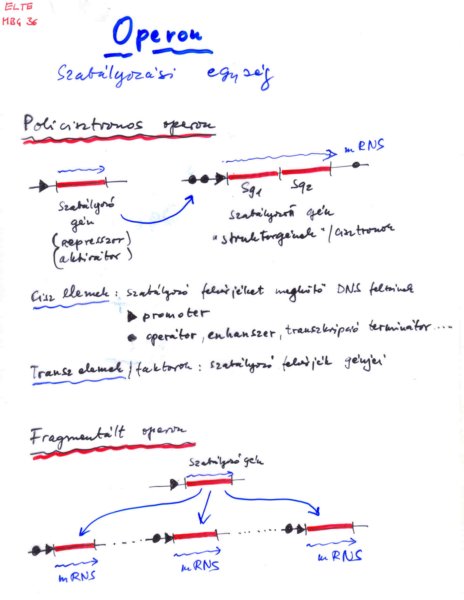 ELTE
MBG 36
Operon
Szabályozási egység
Policisztronos operon
mRNS
Sg1 Sg2
szabályozó
gén
(represszor)
(aktivátor)
szabályozott gén
"struktorgének"/cisztronok
Cisz elemek: szabályozó fehérjéket megkötő DNS
promoter
operátor, enhanszer, transzkripció terminátor....
Transz elemek/faktorok: szabályozó fehérjék génjei
Fragmentált operon
szabályozó gén
mRNS mRNS mRNS